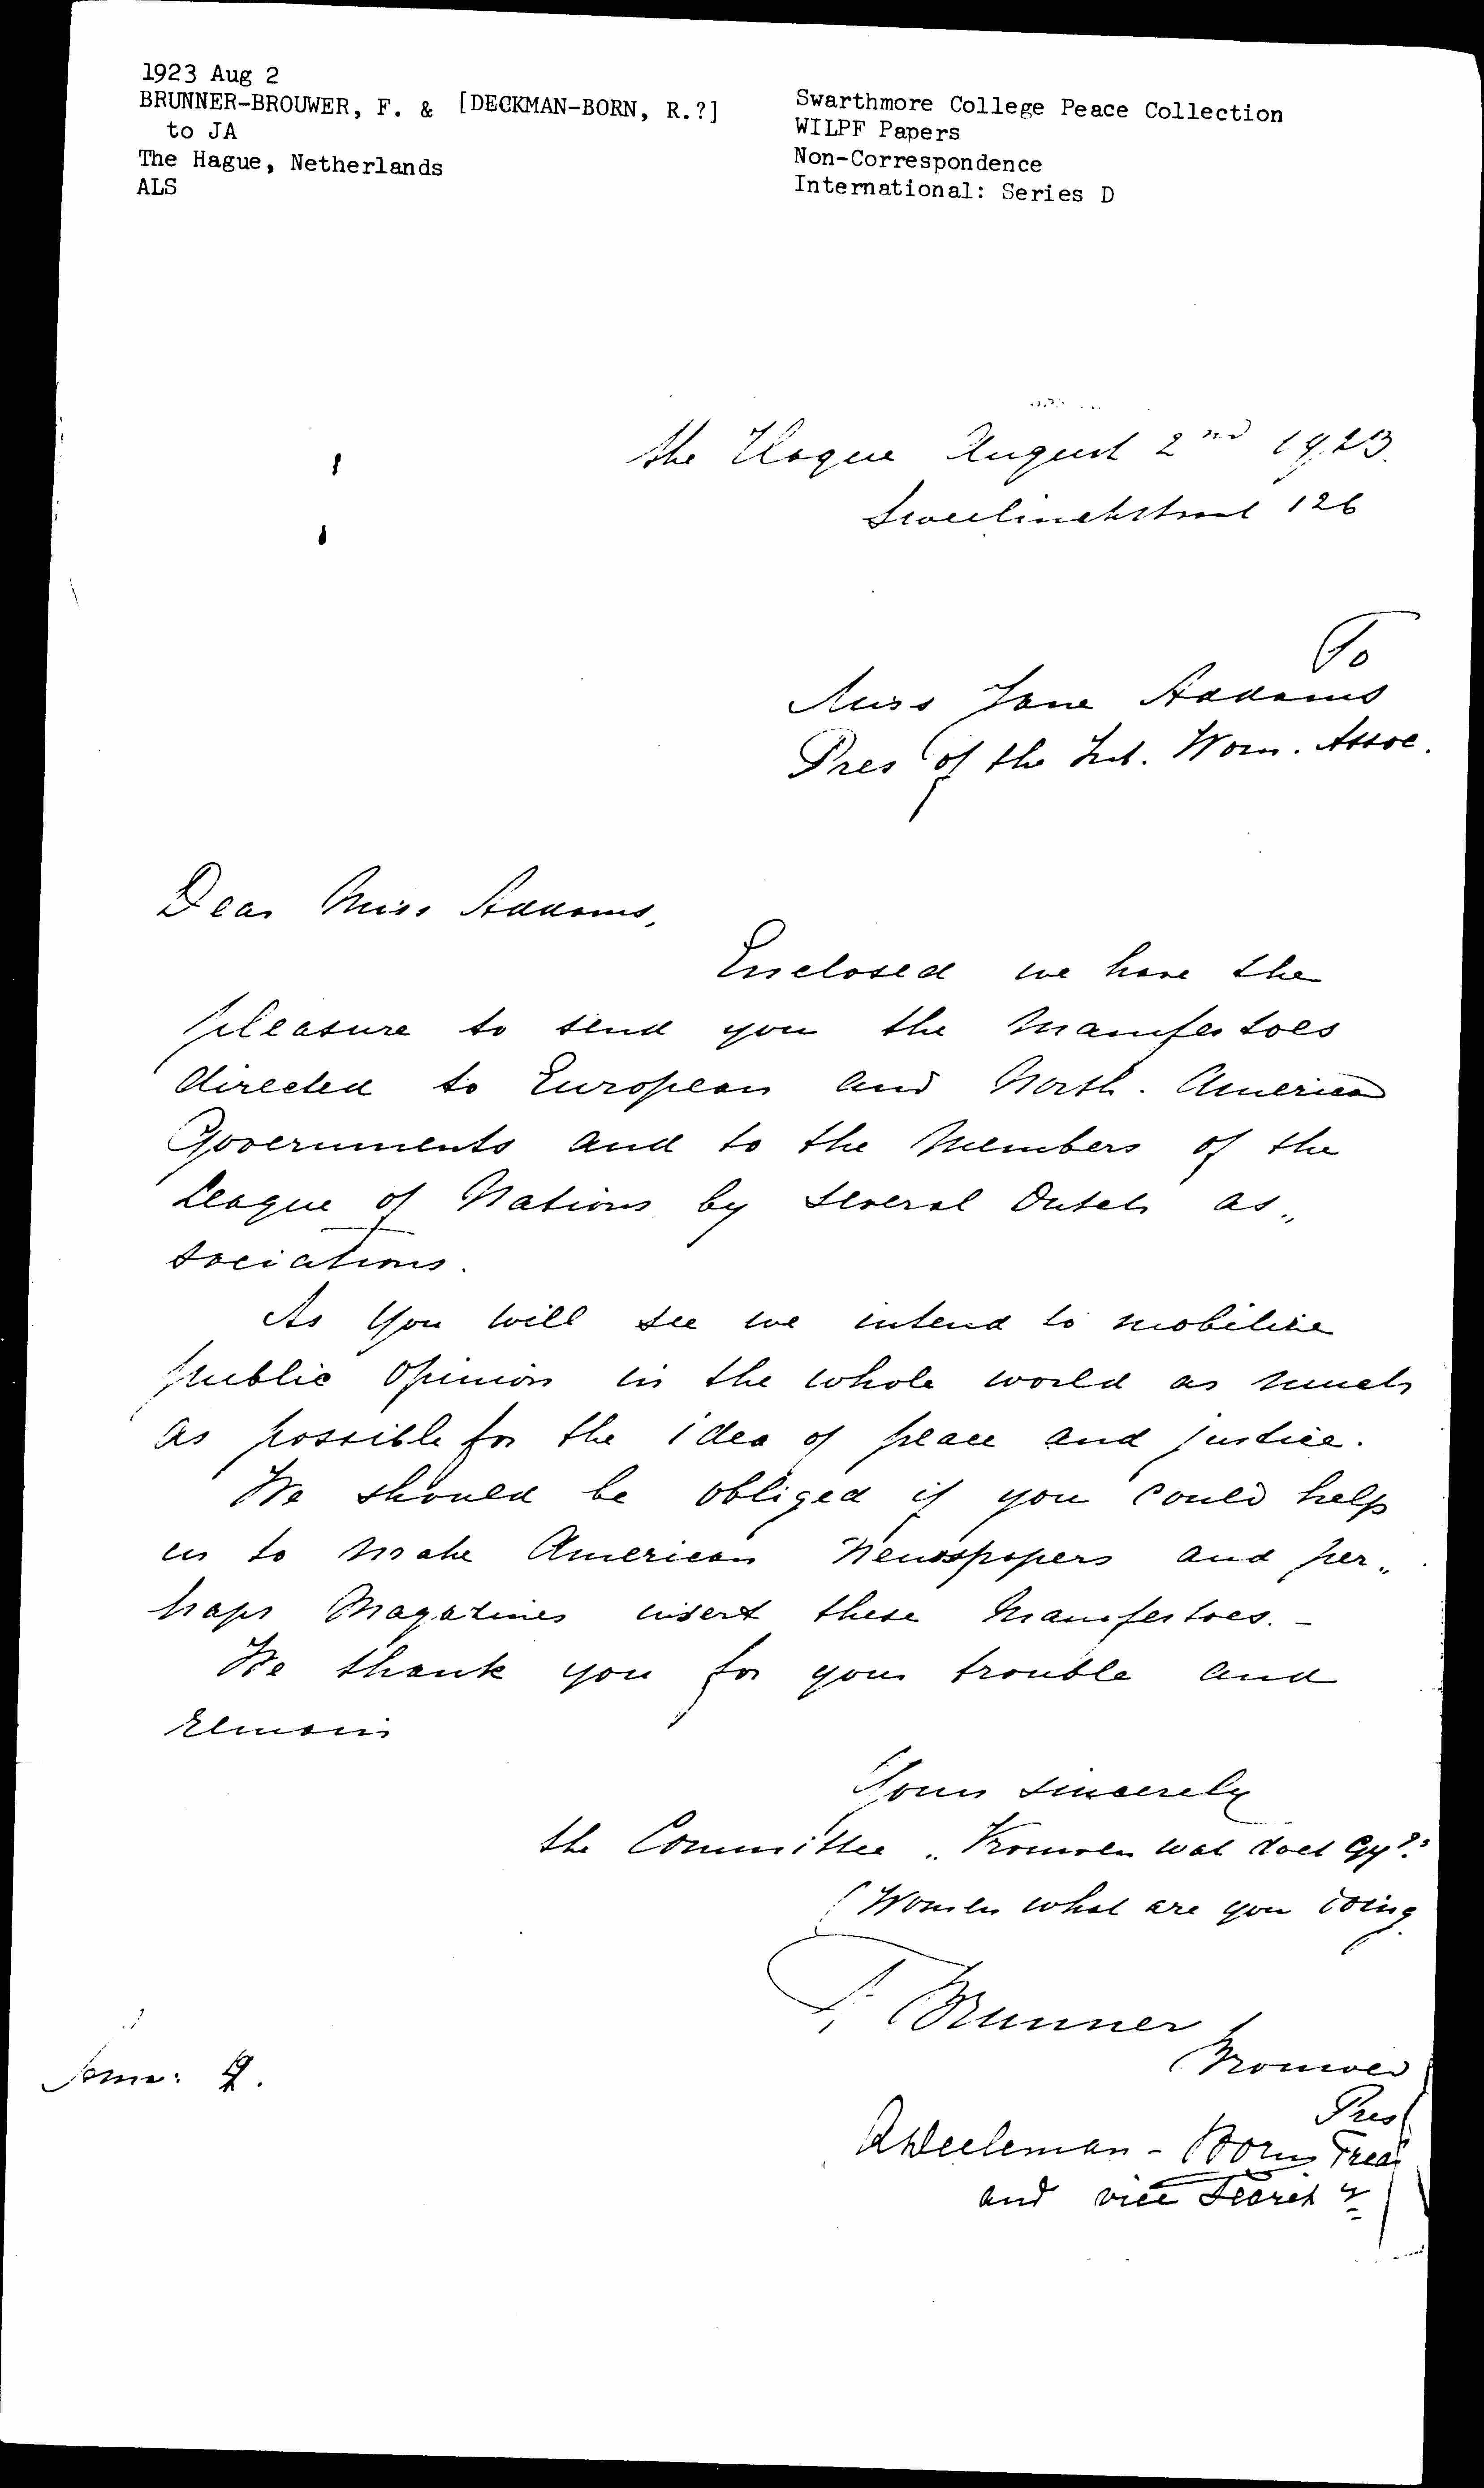 1923 Aug 2
BRUNNER-BROUWER, F. & [DECKMAN-BORN, R.?]
to JA
The Hague, Netherlands
ALS
Swarthmore College Peace Collection
WILPF Papers
Non-Correspondence
International: Series D
the Hague August 2nd 1923.
Sweelinckstraat 126
To
Miss Jane Addams
Pres of the Int. Wom. Assoc.
Dear Miss Addams,
Enclosed we have the
pleasure to send you the Manifestoes
directed to European and North. American
Governments and to the Members of the
League of Nations by several Dutch as„
sociations.
As you will see we intend to mobilize
public opinion in the whole world as much
as possible for the idea of peace and justice.
We should be obliged if you could help
us to make American Newspapers and per„
haps Magazines insert these Manifestoes. –
We thank you for your trouble and
remain
Yours sincerely
the Committee „Vrouwen wat doet Gy?"
(Women what are you doing
F. Brunner
Brouwer
Pres
Born Treas
and vice Secret y